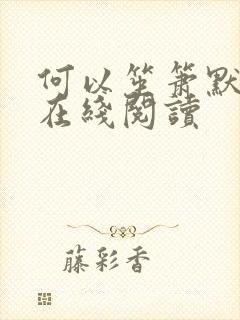 何以笙箫默
在綫閱讀
藤彩香